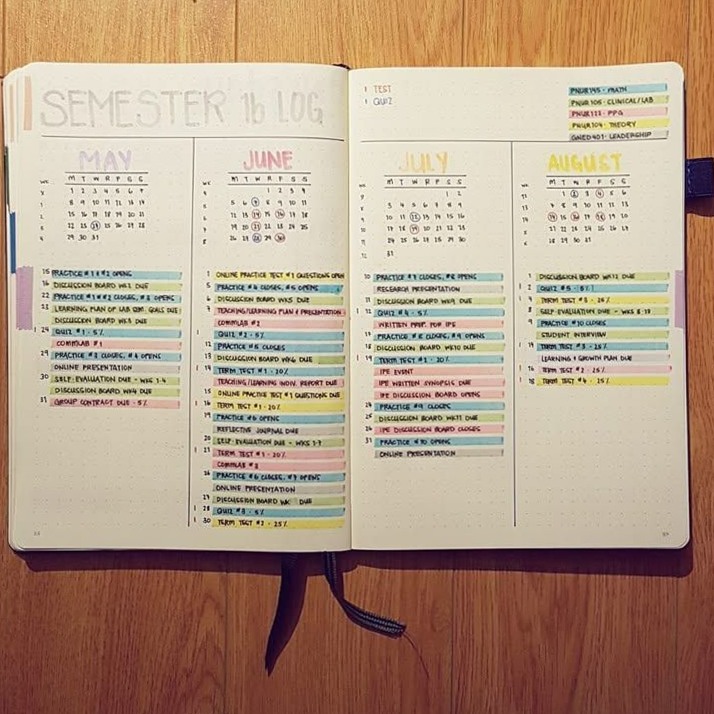 SEMESTER 1b LOG
MAY
M T W R F S S
1 2 3 4 5 6 7
8 9 10 11 12 13 14
15 16 17 18 19 20 21
22 23 24 25 26 27 28
29 30 31
15 PRACTICE #1 & #2 OPENS
16 DISCUSSION BOARD WK1 DUE
22 PRACTICE #1 & #2 CLOSES, #3 OPENS
23 LEARNING PLAN OF LAB QM. GOALS DUE
DISCUSSION BOARD WK3 DUE
1 24 QUIZ #1 - 5%
COMMLAB #1
29 PRACTICE #3 CLOSES, #4 OPENS
ONLINE PRESENTATION
30 SELF-EVALUATION DUE - WKS 1-4
DISCUSSION BOARD WK4 DUE
31 GROUP CONTRACT DUE - 5%
JUNE
M T W R F S S
1 2 3 4
5 6 7 8 9 10 11
12 13 14 15 16 17 18
19 20 21 22 23 24 25
26 27 28 29 30
1 ONLINE PRACTICE TEST #1 QUESTIONS OPEN
5 PRACTICE #4 CLOSES, #5 OPENS
6 DISCUSSION BOARD WK5 DUE
7 TEACHING/LEARNING PLAN & PRESENTATION
COMMLAB #2
QUIZ #2 - 5%
12 PRACTICE #5 CLOSES
13 DISCUSSION BOARD WK6 DUE
1 14 TERM TEST #1 - 20%
TEACHING/LEARNING INDV. REPORT DUE
15 ONLINE PRACTICE TEST #1 QUESTIONS DUE
1 16 TERM TEST #1 - 20%
19 PRACTICE #6 OPENS
REFLECTIVE JOURNAL DUE
20 SELF-EVALUATION DUE - WKS 1-7
1 21 TERM TEST #1 - 20%
COMMLAB #3
26 PRACTICE #6 CLOSES, #7 OPENS
ONLINE PRESENTATION
27 DISCUSSION BOARD WK DUE
1 28 QUIZ #3 - 5%
1 30 TERM TEST #2 - 25%
1 TEST
1 QUIZ
PNUR195 - MATH
PNUR105 - CLINICAL/LAB
PNUR123 - PPG
PNUR104 - THEORY
GNED401 - LEADERSHIP
JULY
M T W R F S S
1 2
3 4 5 6 7 8 9
10 11 12 13 14 15 16
17 18 19 20 21 22 23
24 25 26 27 28 29 30
31
10 PRACTICE #7 CLOSES, #8 OPENS
RESEARCH PRESENTATION
11 DISCUSSION BOARD WK9 DUE
1 12 QUIZ #4 - 5%
WRITTEN PREP FOR IPE
17 PRACTICE #8 CLOSES, #9 OPENS
18 DISCUSSION BOARD WK10 DUE
1 19 TERM TEST #2 - 20%
IPE EVENT
IPE WRITTEN SYNOPSIS DUE
IPE DISCUSSION BOARD OPENS
24 PRACTICE #9 CLOSES
25 DISCUSSION BOARD WK11 DUE
26 IPE DISCUSSION BOARD CLOSES
31 PRACTICE #10 OPENS
ONLINE PRESENTATION
AUGUST
M T W R F S S
1 2 3 4 5 6
7 8 9 10 11 12 13
14 15 16 17 18 19 20
21 22 23 24 25 26 27
28 29 30 31
1 DISCUSSION BOARD WK12 DUE
1 2 QUIZ #5 - 5%
1 4 TERM TEST #3 - 25%
8 SELF-EVALUATION DUE - WKS 8-13
9 PRACTICE #10 CLOSES
STUDENT INTERVIEW
1 14 TERM TEST #3 - 25%
LEARNING & GROWTH PLAN DUE
1 16 TERM TEST #2 - 25%
1 18 TERM TEST #4 - 25%